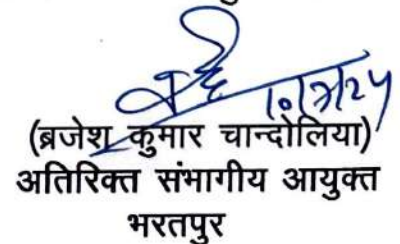 10/7/24
(ब्रजेश कुमार चान्दोलिया)
अतिरिक्त संभागीय आयुक्त
भरतपुर